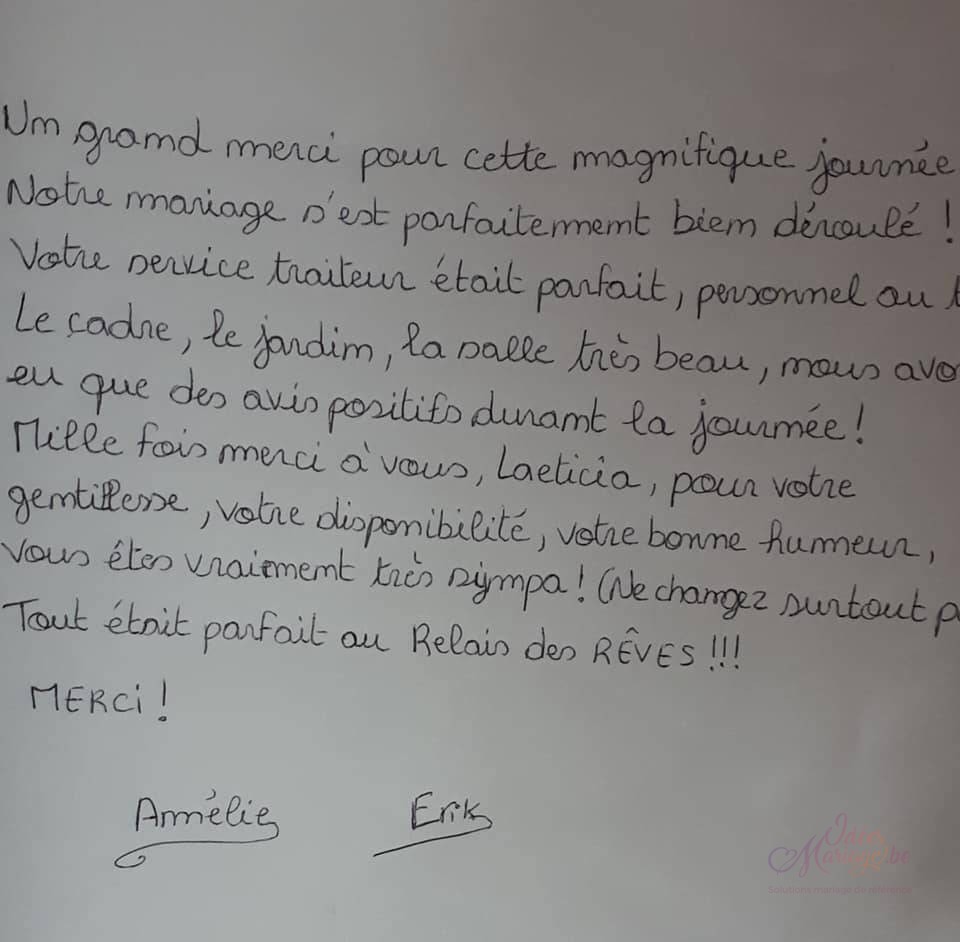 Un grand merci pour cette magnifique journée
Notre mariage s'est parfaitement bien déroulé !
Votre service traiteur était parfait, personnel au
Le cadre, le jardin, la salle très beau, nous avo
eu que des avis positifs durant la journée !
Mille fois merci à vous, Laeticia, pour votre
gentillesse, votre disponibilité, votre bonne humeur,
vous êtes vraiment très sympa ! (Ne changez surtout p
Tout était parfait au Relais des RÊVES !!!
MERCi !
Annélie Erik
Mariage.be